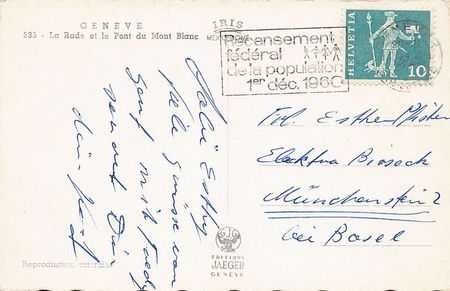 GENEVE
585 - La Rade et le Pont du Mont Blanc
IRIS
Recensement
fédéral
de la population
1er déc. 1960
HELVETIA
10
Esthy
viele Grüsse von
Genf
dein
Reproduction interdite
EDITIONS
JAEGER
GENEVE
Frl. Esther Pfister
Elektra Birseck
Münchenstein 2
bei Basel